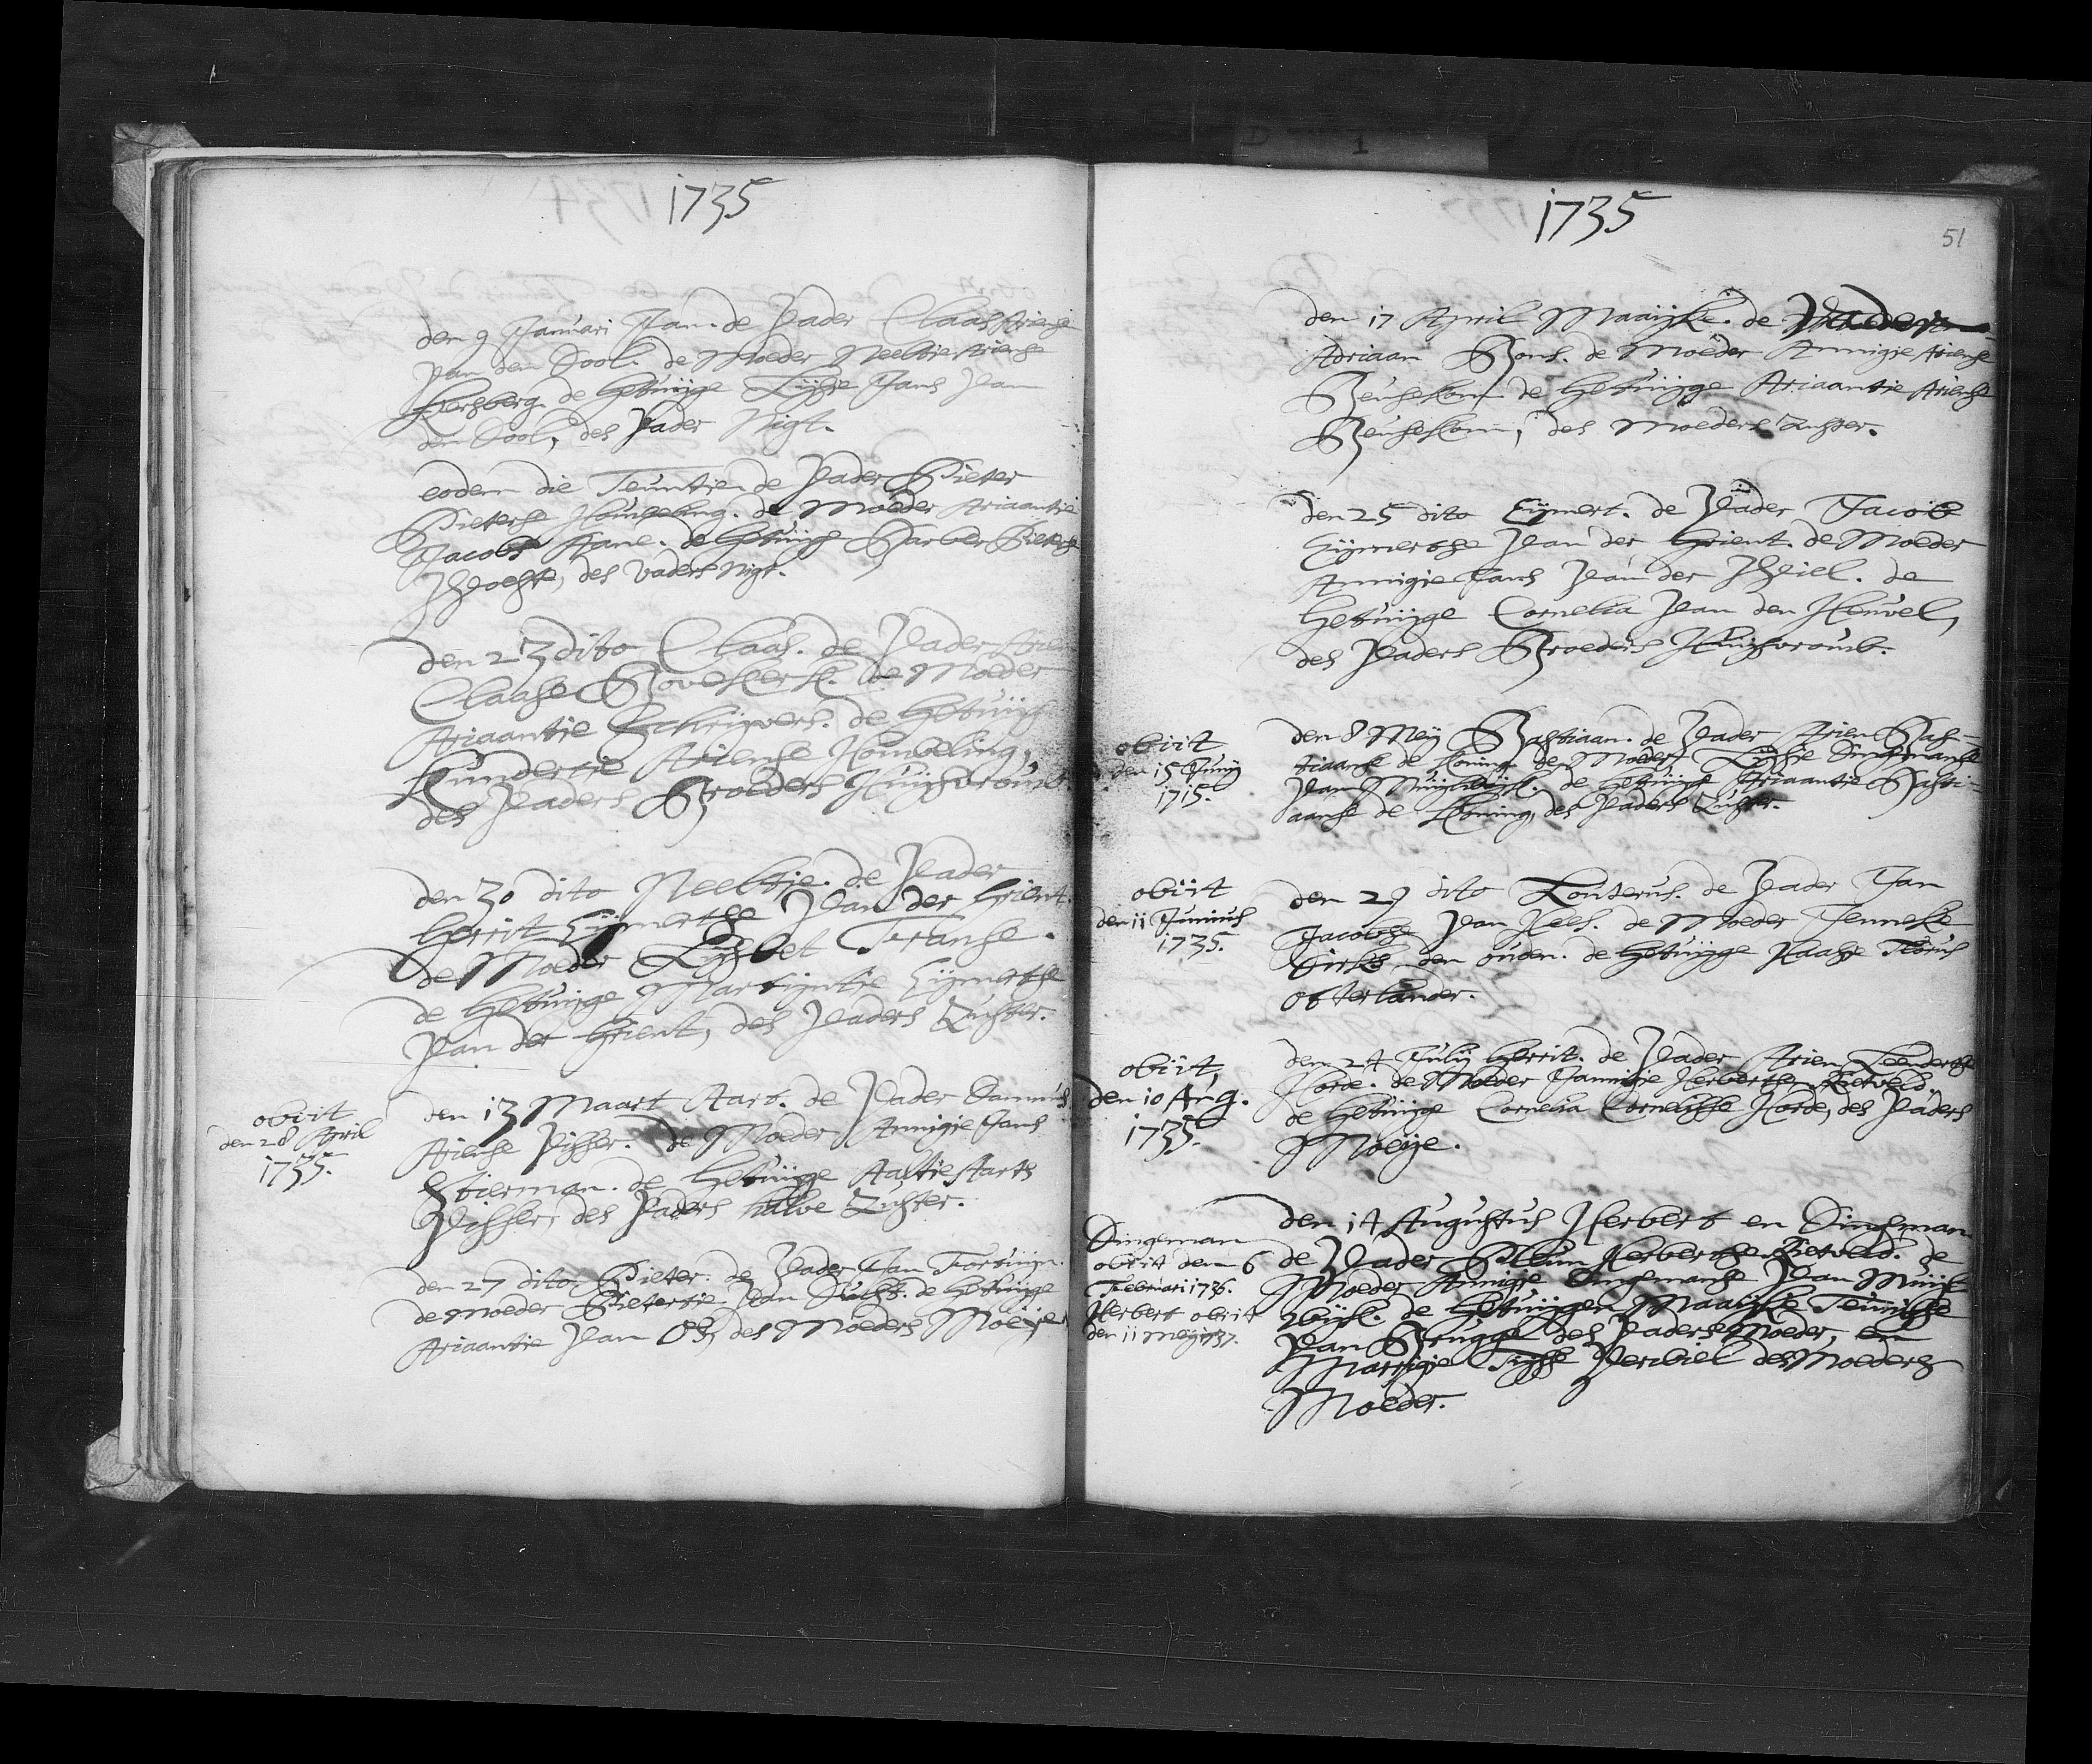 1735
den 9 Januari Jan. de Vader Claas Ariense
van den Dool. de Moeder Neeltie Ariense
Hersberg. de Getuijge Lijsje Jans van
den Dool, des Vader Nigt.
eodem die Teuntie de Vader Pieter
Pieterse Houweling. de Moeder Ariaantie
Jacobs Kane. de Getuige Barber Pieterse
des Vaders Nigt.
den 23 dito Claas. de Vader Arien
Claase Bovekerk. de Moeder
Ariaantie Schrijvers. de Getuijge
Hundertie Ariense Houweling,
des Vaders Broeders Huijsvrouw.
den 30 dito Neeltje. de Vader
Gerrit Eijmertse van der Grient.
de Moeder Lijsbet Franse.
de Getuijge Martijntie Eijmertse
van der Grient, des Vaders Zuster.
obiit
den 28 April
1735.
den 13 Maart Aart. de Vader Dannis
Ariense Visser. de Moeder Annigie Jans
Stierman. de Getuijge Aaltie Aarts
Visser, des Vaders halve Zuster.
den 27 dito Pieter. de Vader Jan Fortuijn.
de Moeder Pietertie van Dulk. de Getuijge
Ariaantie van Os, des Moeders Moeije
1735
51
den 17 April Maaijke. de Vader
Adriaan Bons. de Moeder Annigie Ariense
Beusekom de Getuijge Ariaantie Ariense
Beusekom, des Moeders Zuster.
den 25 dito Eijmert. de Vader Jacob
Eijmertse van der Grient. de Moeder
Annigie Jans van der Wiel. de
Getuijge Cornelia van den Heuvel,
des Vaders Broeders Huijsvrouw.
obiit
den 15 Junij
1715.
den 8 Meij Bastiaan. de Vader Arien Bas-
tiaanse de Koning de Moeder Lijsie Dingemanse
van Muijlwijk. de Getuijge Ariaantie Basti-
aanse de Koning, des Vaders Zuster.
obiit
den 11 Junius
1735.
den 29 dito Louterus. de Vader Jan
Jacobse van Nees. de Moeder Jenneke
Dirks den ouden. de Getuijge Klaasje Florus
Otterlander.
obiit
den 10 Aug.
1735.
den 24 Julij Gerrit. de Vader Arien Leendertse
Horde. de Moeder Jannigie Herbertse Rietveld.
de Getuijge Cornelia Cornelisse Horde, des Vaders
Moeije.
Dingeman
obiit den 6
Februari 1736.
Herbert obiit
den 11 Meij 1737.
den 14 Augustus Herbert en Dingeman
de Vader Pleun Herbertse Rietveld. de
Moeder Annigje Dingemanse van Muijl
wijk. de Getuijgen Maaijke Teunisse
van Brugge des Vaders Moeder, en
Marrigie Tijsse Verwiel des Moeders
Moeder.